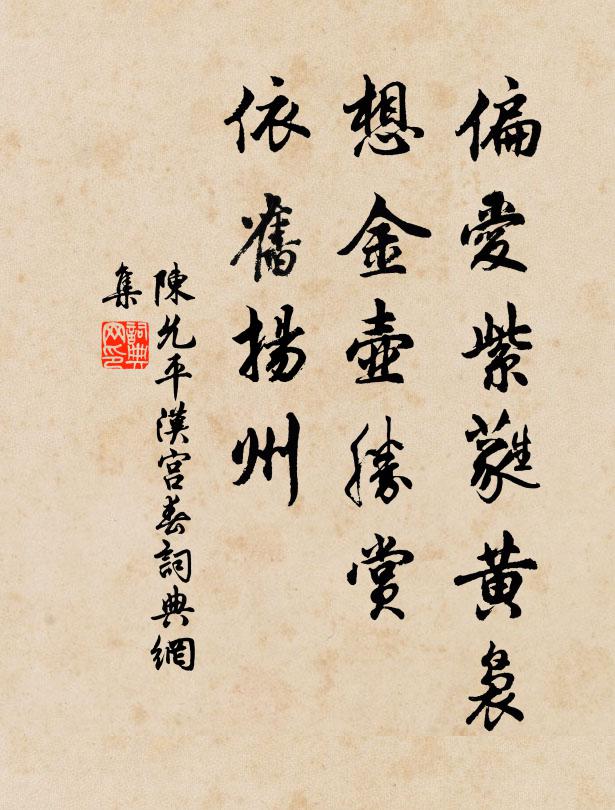 偏愛紫蕤黃裊
想金壺勝賞
依舊揚州
陳允平漢宮春詞典網
集
詞典
网印